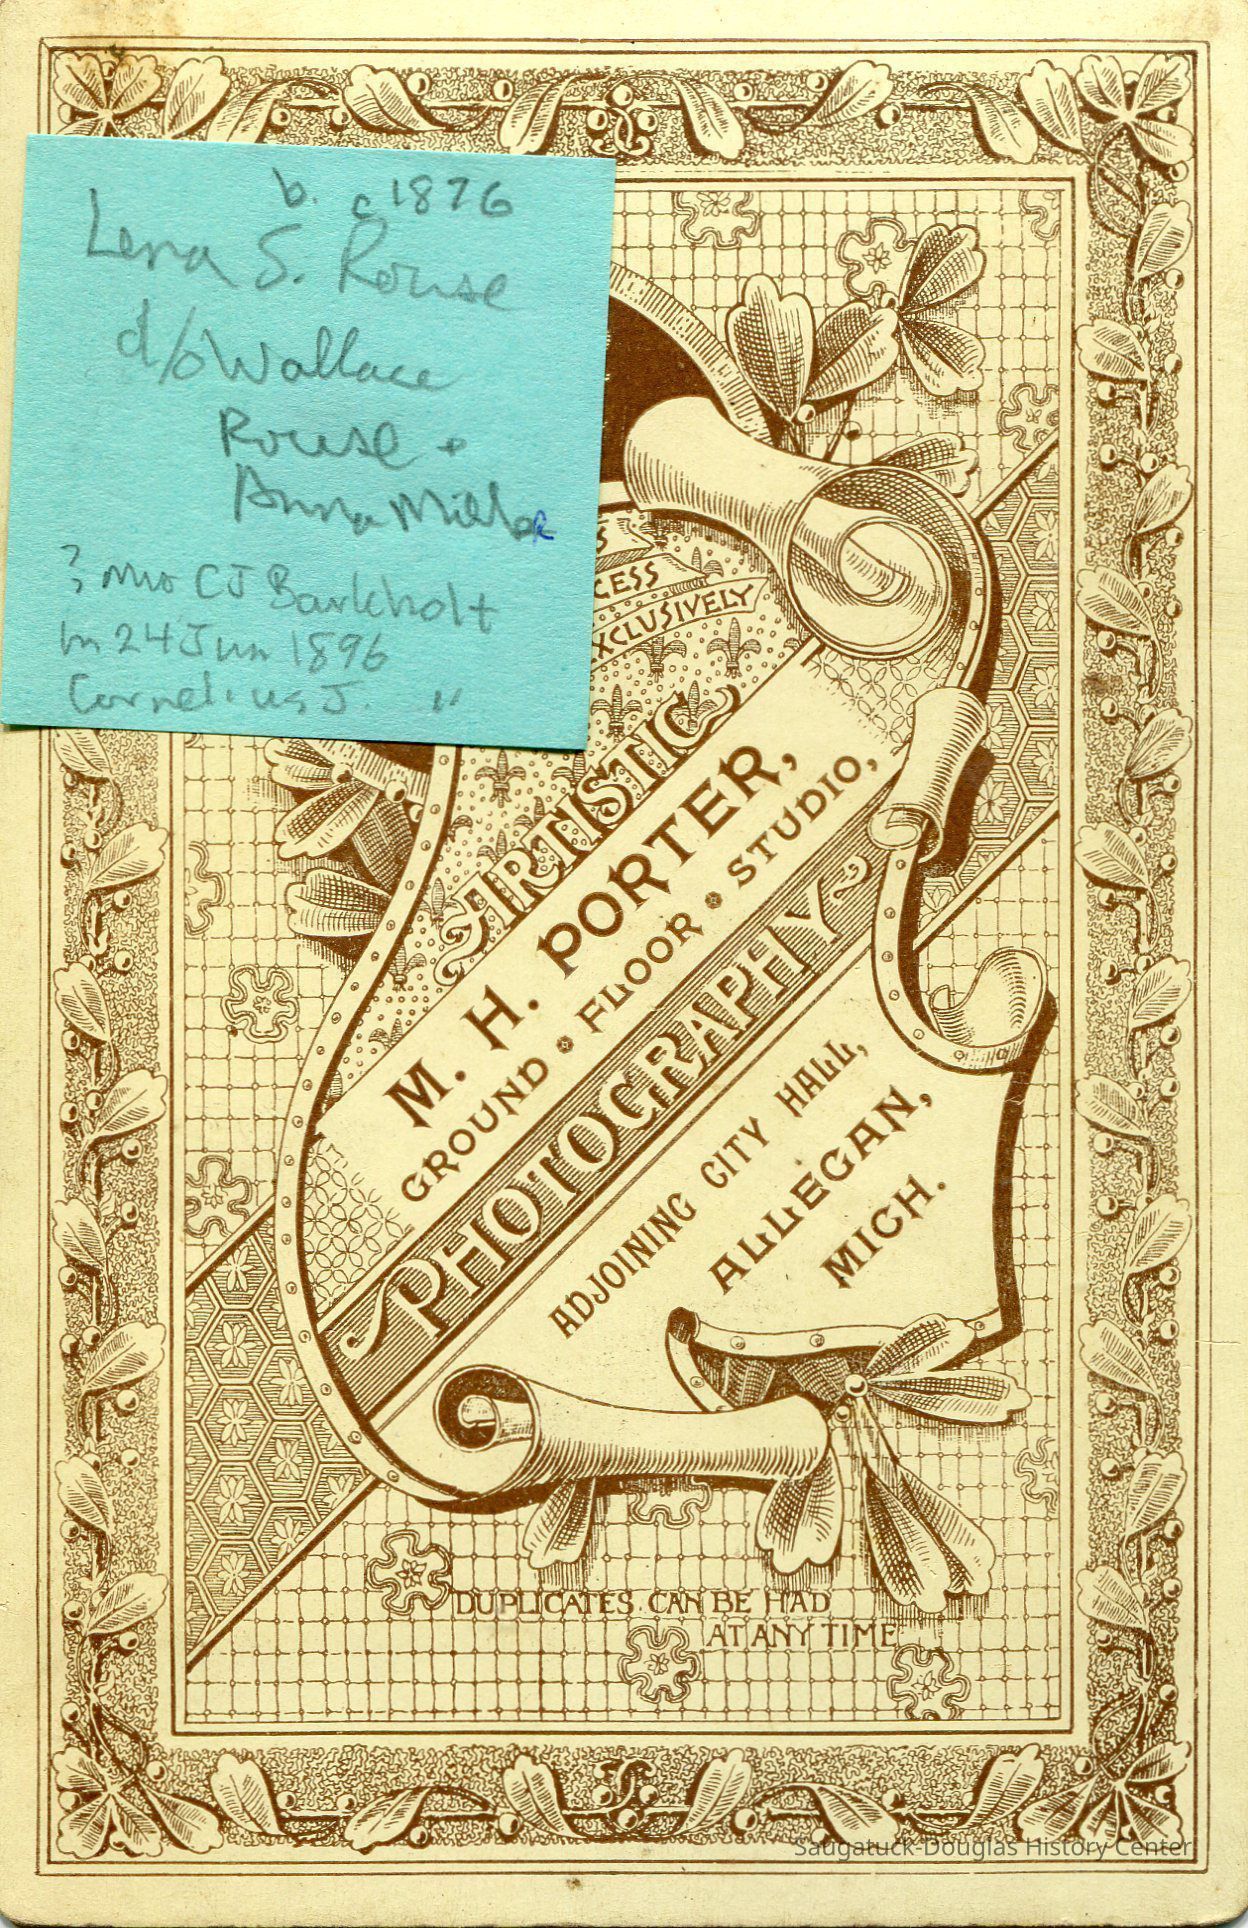 b. c 1876
Lena S. Rouse
d/o Wallace
Rouse +
Anna Miller
? mrs CJ Barkholt
m 24 Jun 1896
Cornelius J. "
CESS
XCLUSIVELY
ARTISTIC
M. H. PORTER,
GROUND FLOOR STUDIO,
PHOTOGRAPHY
ADJOINING CITY HALL,
ALLEGAN,
MICH.
DUPLICATES CAN BE HAD
AT ANY TIME
Saugatuck-Douglas History Center